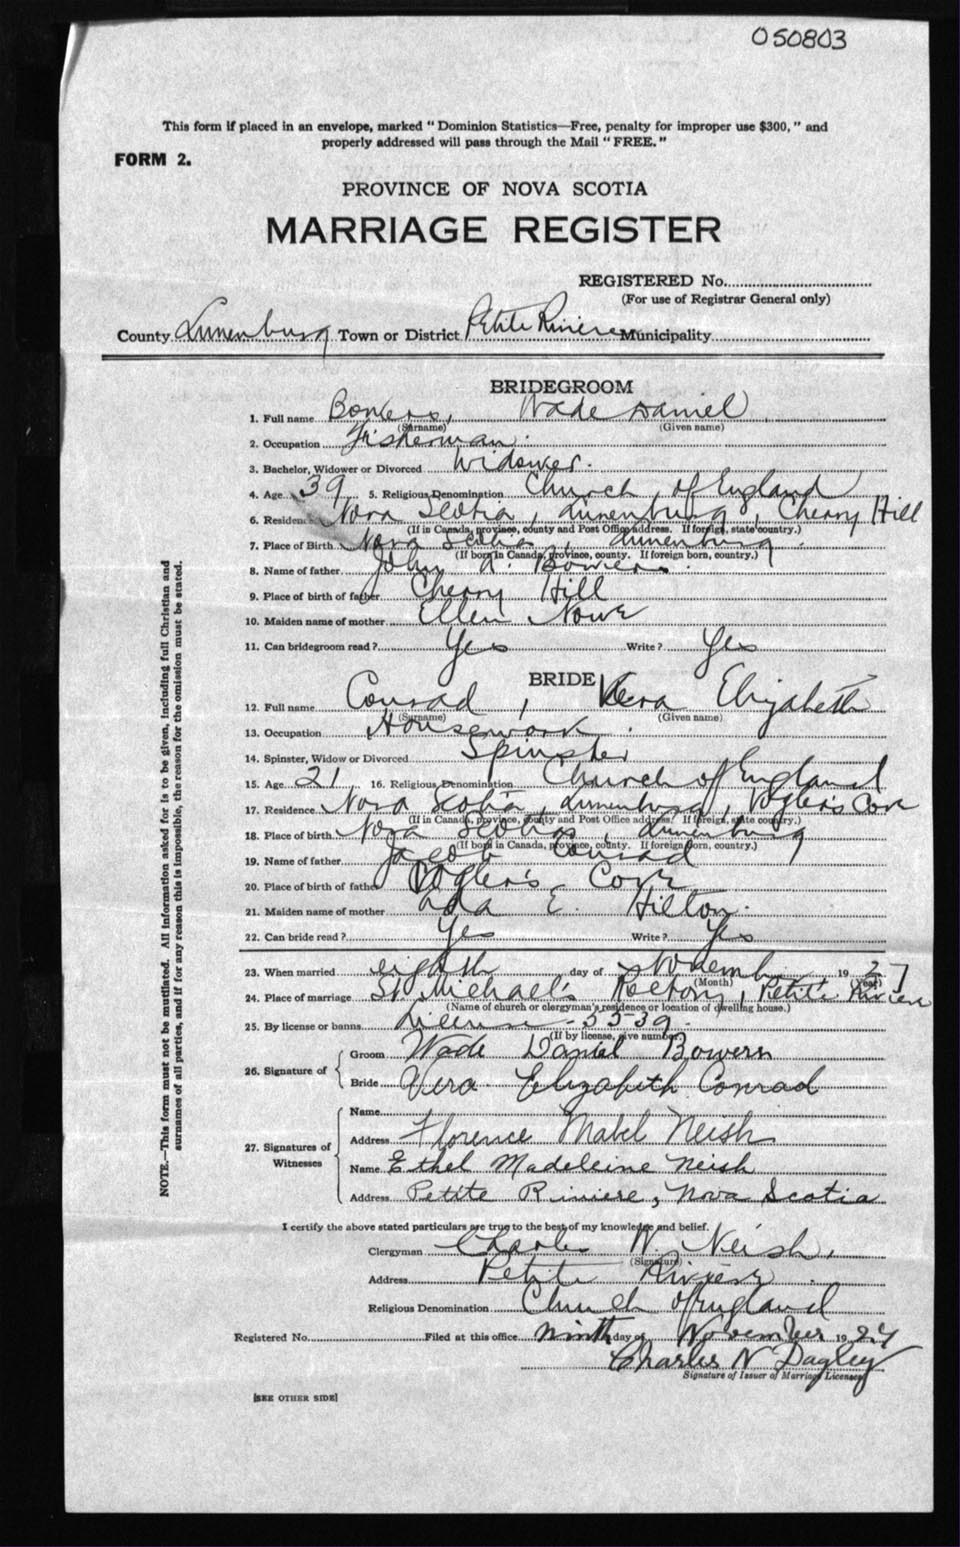 050803
This form if placed in an envelope, marked "Dominion Statistics—Free, penalty for improper use $300," and
properly addressed will pass through the Mail "FREE."
FORM 2.
PROVINCE OF NOVA SCOTIA
MARRIAGE REGISTER
REGISTERED No.
(For use of Registrar General only)
County Lunenburg Town or District Petite Riviere Municipality
BRIDEGROOM
1. Full name Bowers, Wade Daniel
(Surname) (Given name)
2. Occupation Fisherman.
3. Bachelor, Widower or Divorced Widower.
4. Age 39 5. Religious Denomination Church of England
6. Residence Nova Scotia, Lunenburg, Cherry Hill
(If in Canada, province, county and Post Office address. If foreign, state country.)
7. Place of Birth Nova Scotia, Lunenburg
(If born in Canada, province, county. If foreign born, country.)
8. Name of father John A. Bowers.
9. Place of birth of father Cherry Hill
10. Maiden name of mother Ellen Nowe
11. Can bridegroom read? Yes Write? Yes
BRIDE
12. Full name Conrad, Vera Elizabeth
(Surname) (Given name)
13. Occupation Housework.
14. Spinster, Widow or Divorced Spinster
15. Age 21 16. Religious Denomination Church of England
17. Residence Nova Scotia, Lunenburg, Vogler's Cove
(If in Canada, province, county and Post Office address. If foreign, state country.)
18. Place of birth Nova Scotia, Lunenburg
(If born in Canada, province, county. If foreign born, country.)
19. Name of father Jacob Conrad
20. Place of birth of father Vogler's Cove
21. Maiden name of mother Ada E. Hilton.
22. Can bride read? Yes Write? Yes
23. When married eighth day of 19 27
(Month) (Year)
24. Place of marriage St Michael's Rectory, Petite Riviere
(Name of church or clergyman's residence or location of dwelling house.)
25. By license or banns License - 5539.
(If by license, give number.)
26. Signature of
Groom Wade Daniel Bowers
Bride Vera Elizabeth Conrad
27. Signatures of Witnesses
Name
Address Florence Mabel Neish
Name Ethel Madeleine Neish
Address Petite Riviere, Nova Scotia
I certify the above stated particulars are true to the best of my knowledge and belief.
Clergyman Charles W. Neish.
(Signature)
Address Petite Riviere.
Religious Denomination Church of England
Registered No. Filed at this office ninth day of November 1927
Charles N Dagley
Signature of Issuer of Marriage Licenses
[SEE OTHER SIDE]
NOTE.—This form must not be mutilated. All information asked for is to be given, including full Christian and
surnames of all parties, and if for any reason this is impossible, the reason for the omission must be stated.